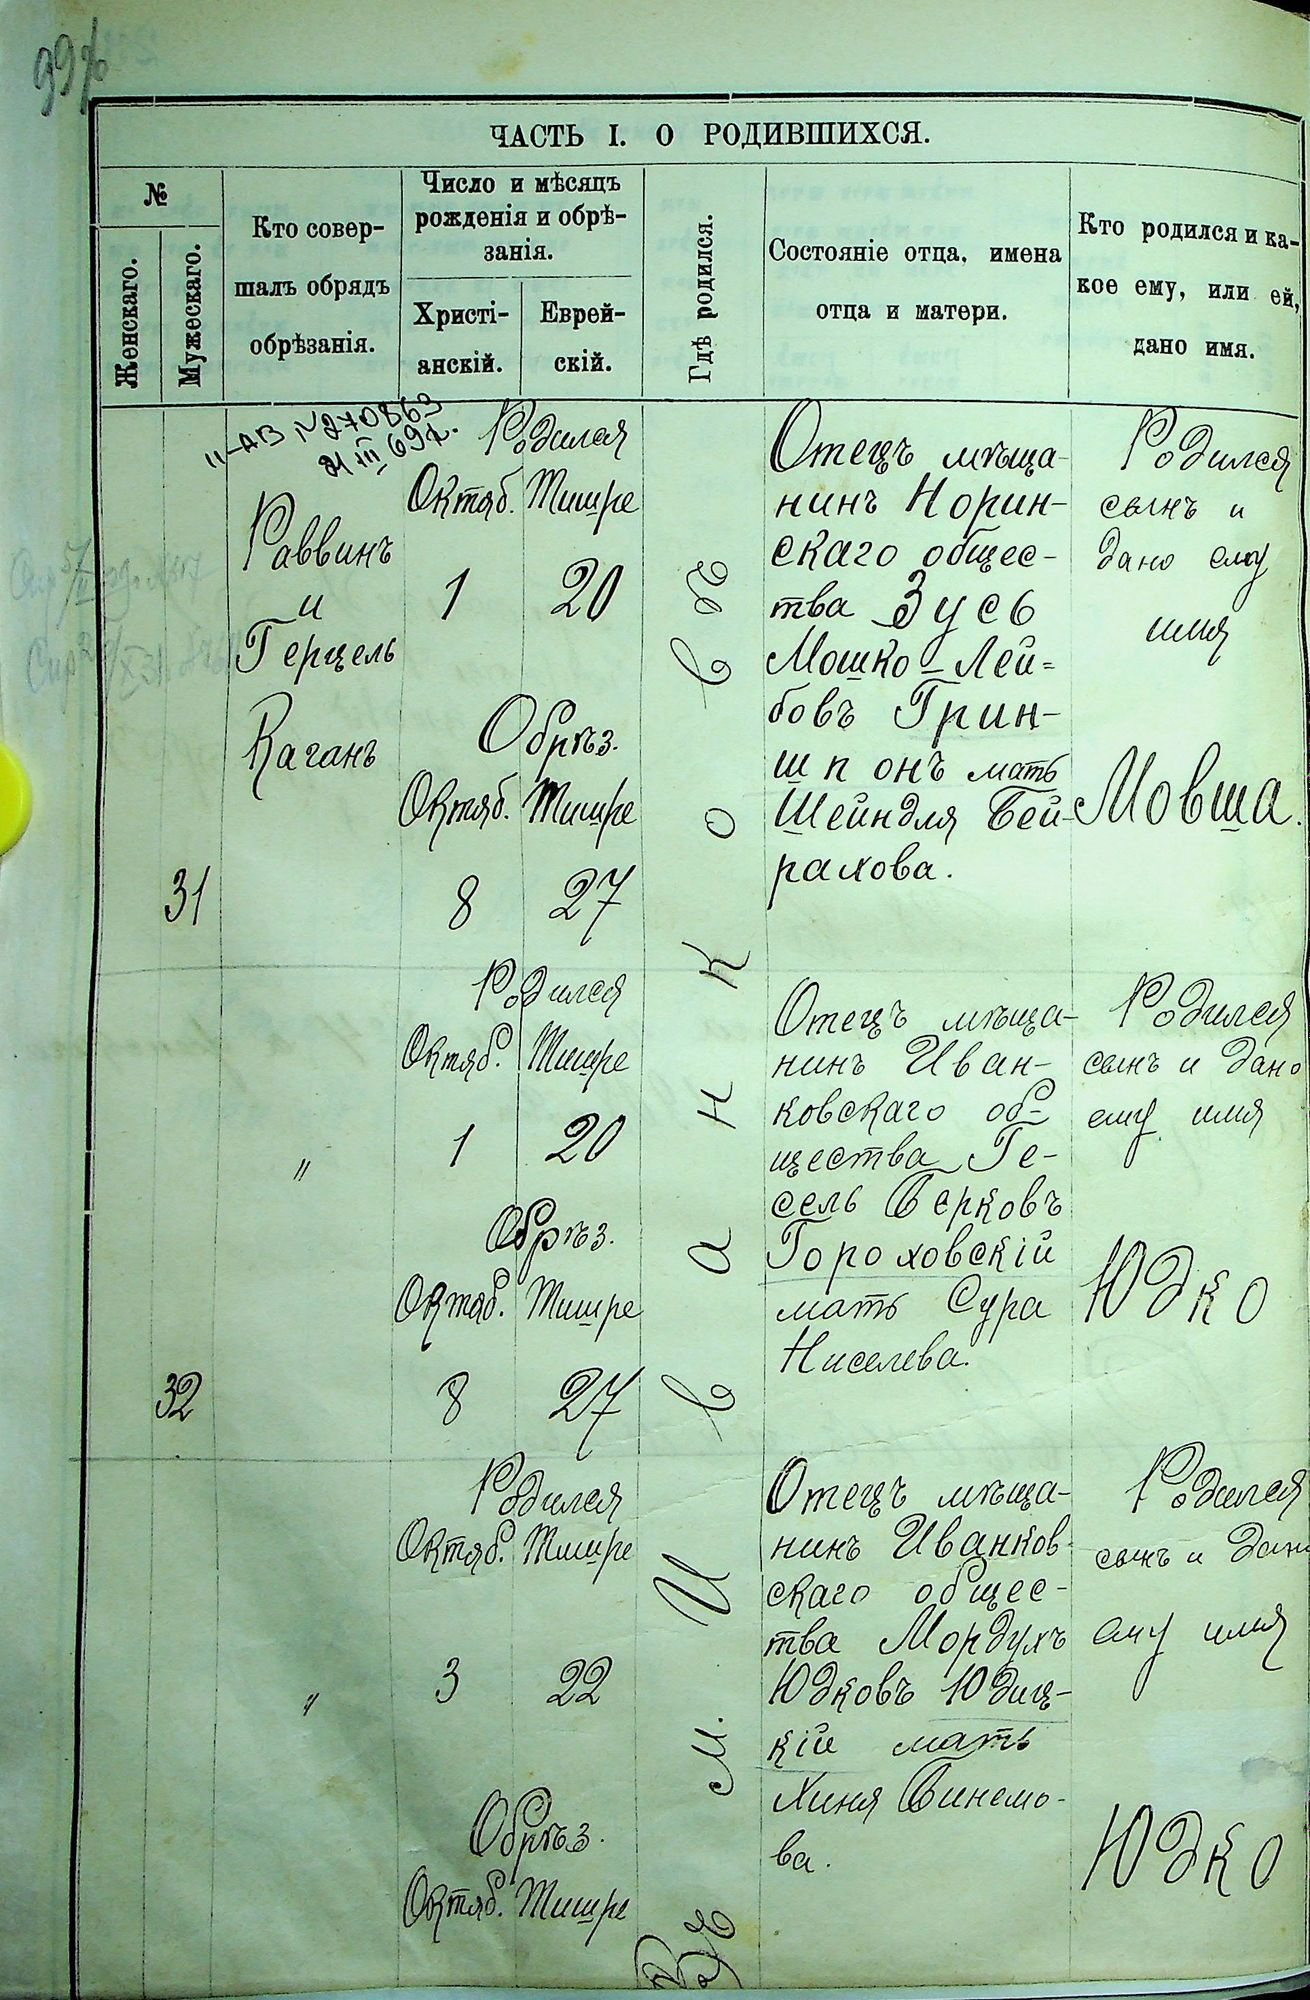 ЧАСТЬ I. О РОДИВШИХСЯ.
№
Женскаго.
Мужескаго.
Кто совер-
шалъ обрядъ
обрѣзанія.
Число и мѣсяцъ
рожденія и обрѣ-
занія.
Христі-
анскій.
Еврей-
скій.
Гдѣ родился.
Состояніе отца, имена
отца и матери.
Кто родился и ка-
кое ему, или ей,
дано имя.
II-АВ №270863
21 III 69г.
31
Раввинъ
и
Герцель
Каганъ
Родился
Октяб. Тишре
1 20
Обрѣз.
Октяб. Тишре
8 27
Въ м. Иванковѣ
Отецъ мѣща-
нинъ Норин-
скаго общес-
тва Зусь
Мошко-Лей-
бовъ Грин-
шпонъ мать
Шейндля Бей-
рахова.
Родился
сынъ и
дано ему
имя
Мовша.
32
"
Родился
Октяб. Тишре
1 20
Обрѣз.
Октяб. Тишре
8 27
Отецъ мѣща-
нинъ Иван-
ковскаго об-
щества Ге-
сель Берковъ
Гороховскій
мать Сура
Нисслева.
Родился
сынъ и дано
ему имя
Юдко
"
Родился
Октяб. Тишре
3 22
Обрѣз.
Октяб. Тишре
Отецъ мѣща-
нинъ Иванков-
скаго общес-
тва Мордухъ
Юдковъ Юдиц-
кій мать
Хиня Винемо-
ва.
Родился
сынъ и дано
ему имя
Юдко